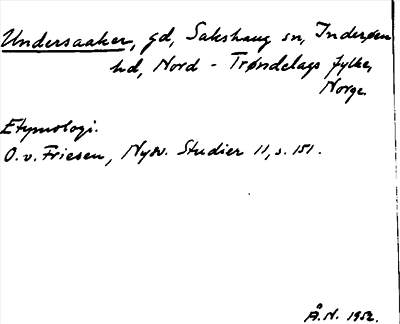 Undersaaker, gd, Sakshaug sn, Inderøen
hd, Nord - Trøndelags fylke,
Norge
Etymologi.
O. v. Friesen, Nysv. Studier 11, s. 151.
Å.N. 1952.